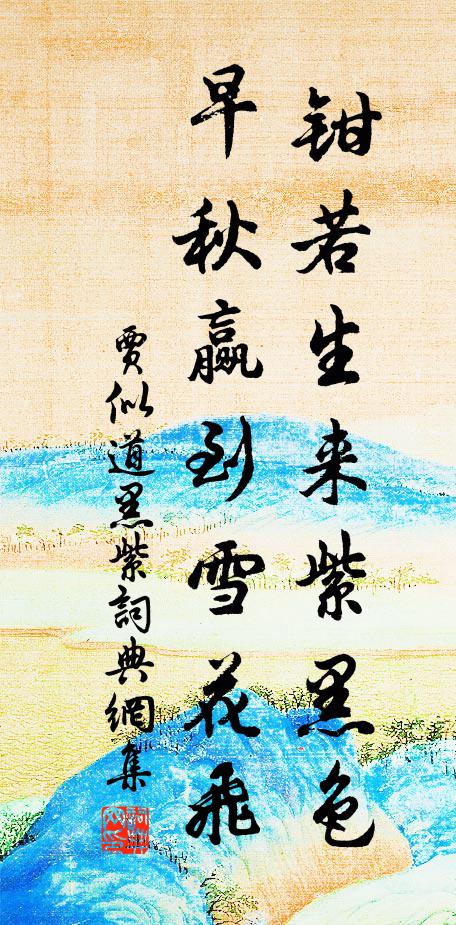 钳若生来紫黑色
早秋贏到雪花飛
賈似道黑紫詞典網集